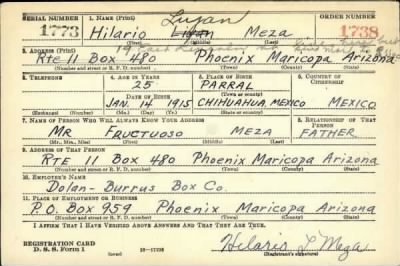 SERIAL NUMBER 1. NAME (Print) Lujan ORDER NUMBER
1773 Hilario Meza 1738
(First) (Middle) (Last)
2. ADDRESS (Print)
Rte 11 Box 480 Phoenix Maricopa Arizona
(Number and street or R. F. D. number) (Town) (County) (State)
3. TELEPHONE 4. AGE IN YEARS 5. PLACE OF BIRTH 6. COUNTRY OF CITIZENSHIP
25 PARRAL
DATE OF BIRTH (Town or county)
JAN. 14 1915 CHIHUAHUA, MEXICO MEXICO
(Exchange) (Number) (Mo.) (Day) (Yr.) (State or country)
7. NAME OF PERSON WHO WILL ALWAYS KNOW YOUR ADDRESS 8. RELATIONSHIP OF THAT PERSON
MR FRUCTUOSO MEZA FATHER
(Mr., Mrs., Miss) (First) (Middle) (Last)
9. ADDRESS OF THAT PERSON
RTE 11 BOX 480 PHOENIX MARICOPA ARIZONA
(Number and street or R. F. D. number) (Town) (County) (State)
10. EMPLOYER'S NAME
Dolan-Burrus Box Co.
11. PLACE OF EMPLOYMENT OR BUSINESS
P.O. Box 959 Phoenix Maricopa Arizona
(Number and street or R. F. D. number) (Town) (County) (State)
I AFFIRM THAT I HAVE VERIFIED ABOVE ANSWERS AND THAT THEY ARE TRUE.
REGISTRATION CARD
D. S. S. Form 1 (over) 16-17105 Hilario L Meza
(Registrant's signature)